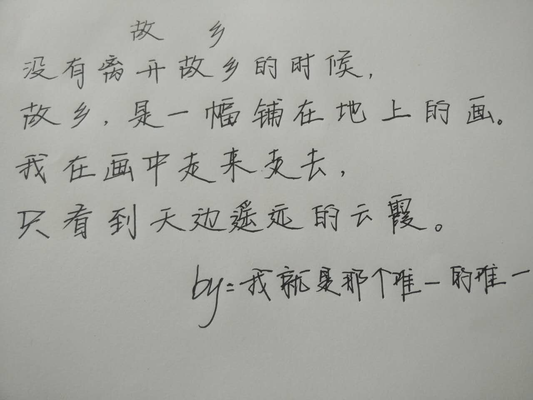 故乡
没有离开故乡的时候,
故乡,是一幅铺在地上的画。
我在画中走来走去,
只看到天边遥远的云霞。
by=我就是那个唯一的唯一